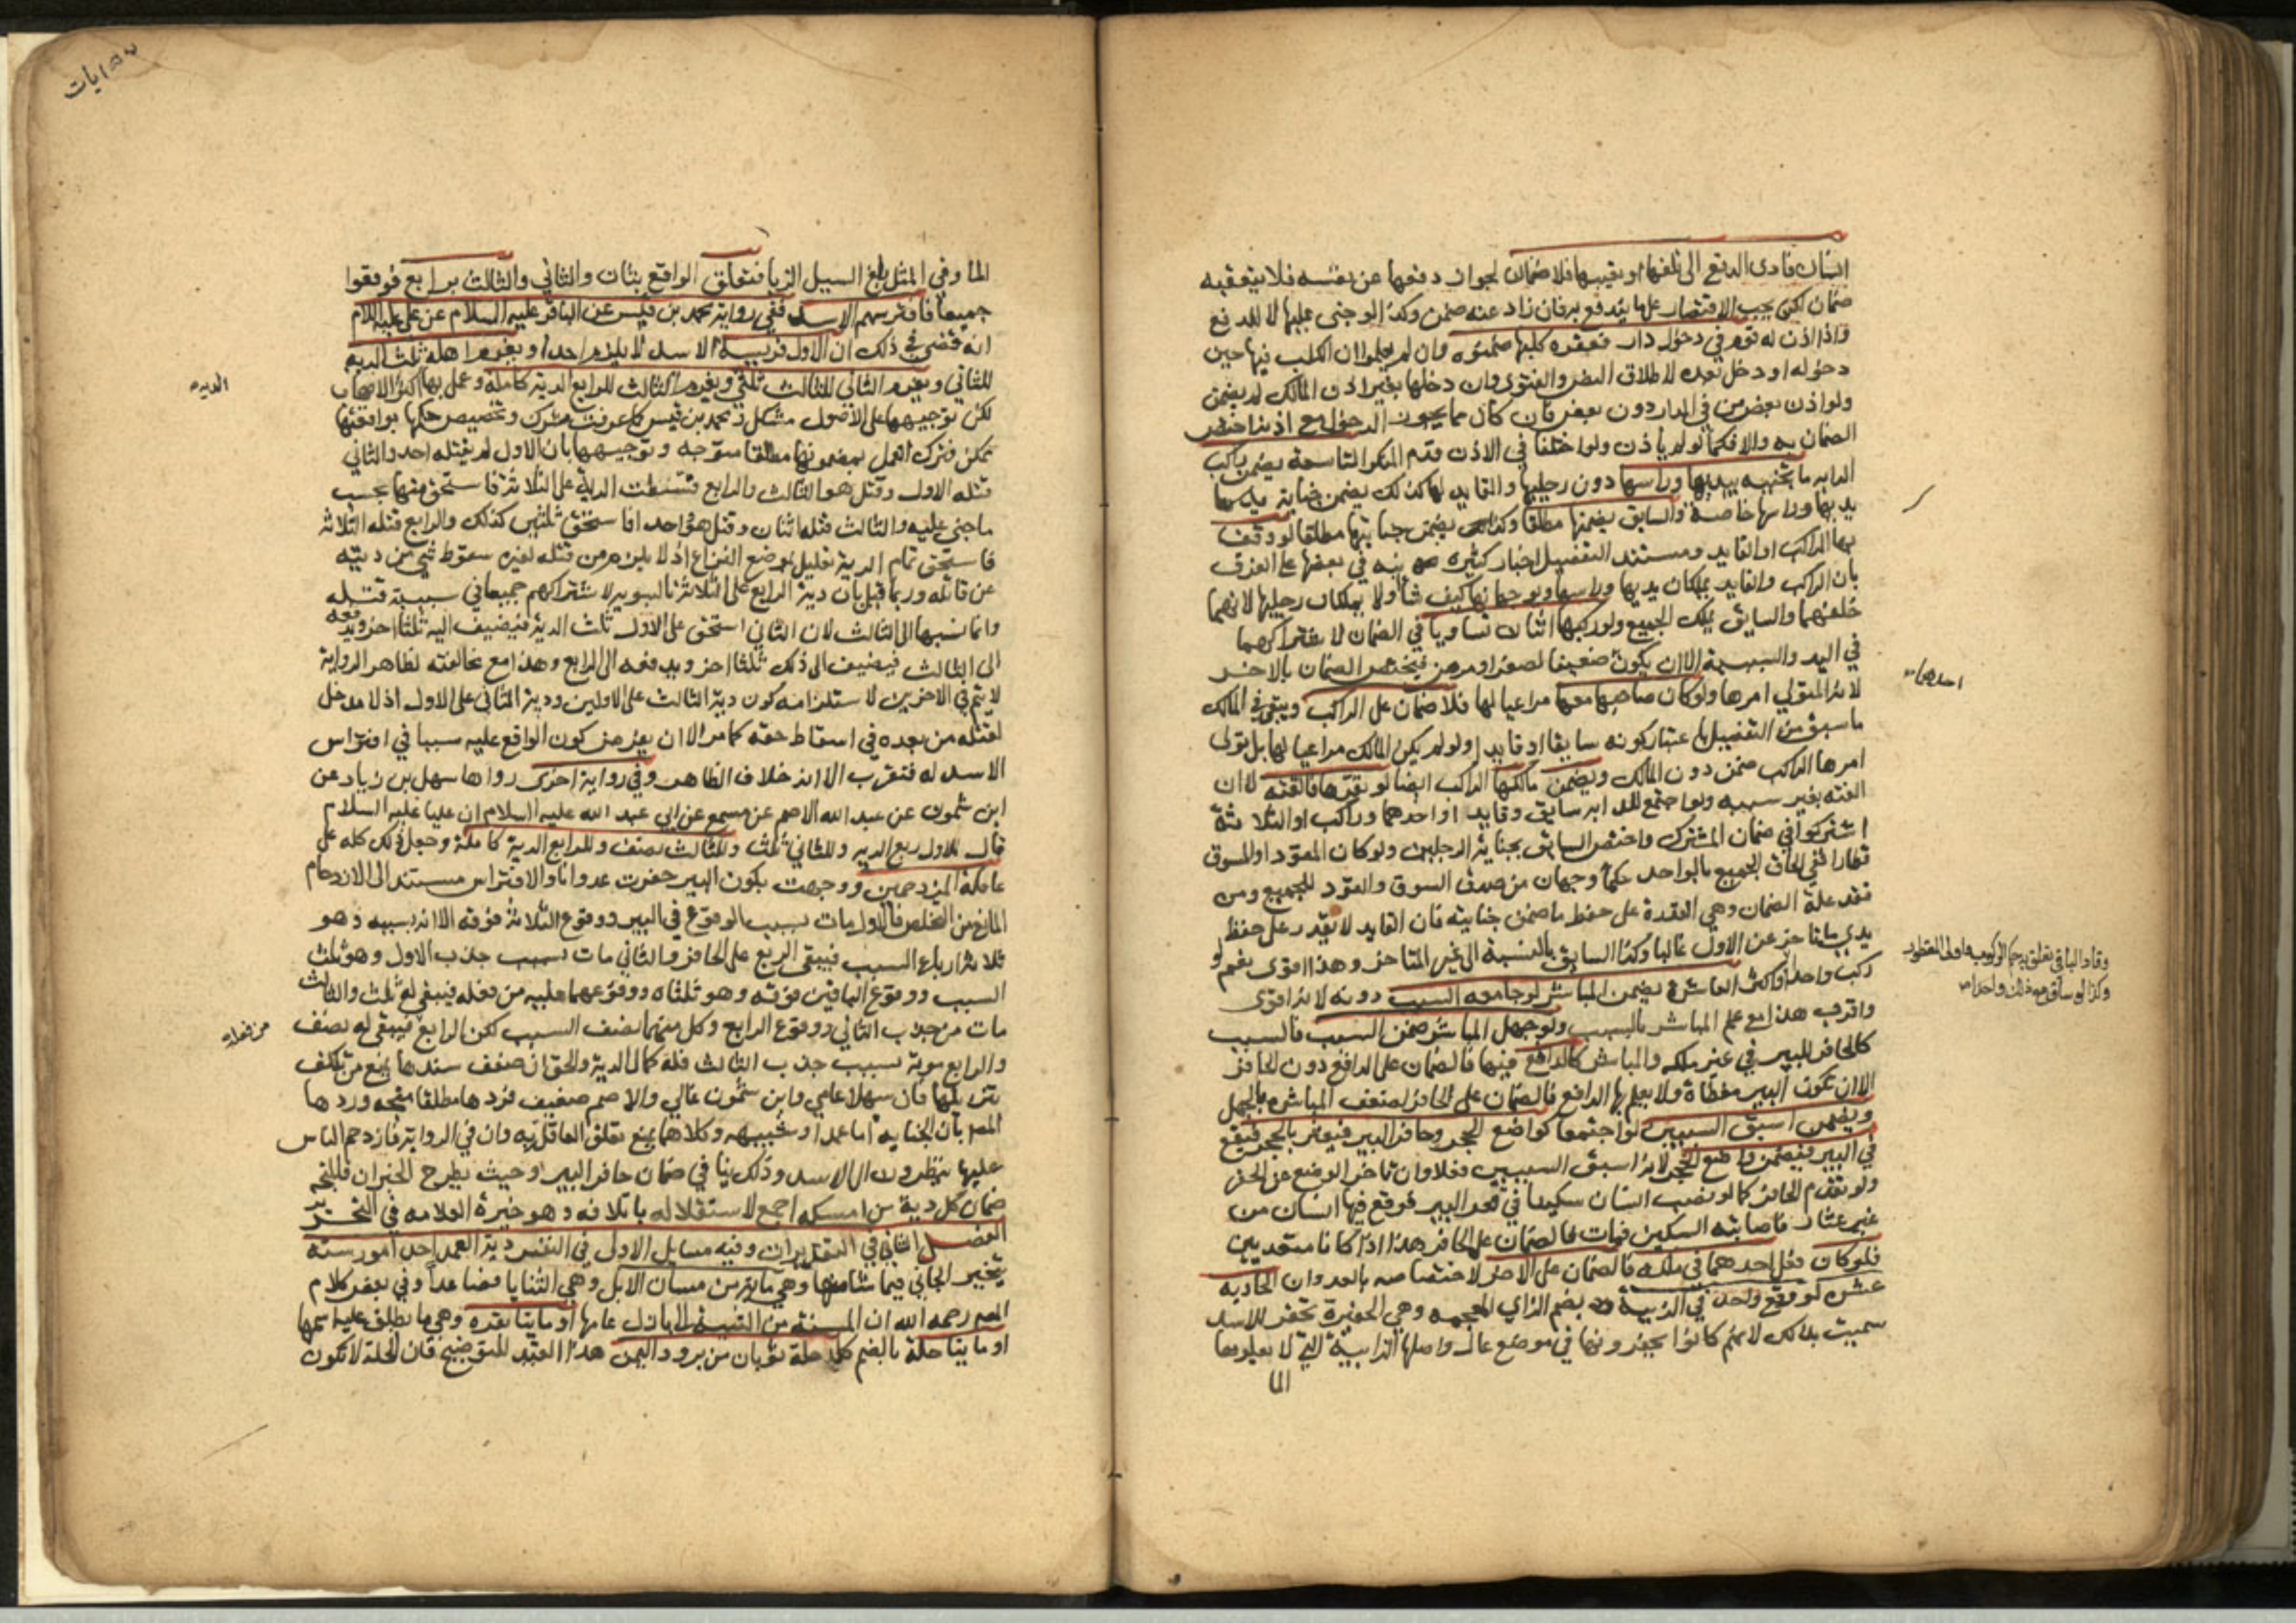 انسان فادى الدفع الى تلفها او تعييبها فلا ضمان لجواز دفعها عن نفسه فلا يتعقبه
ضمان لكن يجب الاقتصار على ما يندفع به فان زاد عنه ضمن وكذا لو جنى عليها لا للدفع
واذا اذن له قوم في دخول دار فعقره كلبها ضمنوه وان لم يعلموا ان الكلب فيها حين
دخوله او دخل بعده لاطلاق النص والفتوى وان دخلها بغير اذن المالك لم يضمن
ولو اذن بعض من في الدار دون بعض فان كان ممن يجوز الدخول مع اذنه اختص
الضمان به والا فكما لو لم ياذن ولو اختلفا في الاذن قدم المنكر التاسعة يضمن راكب
الدابه ما تجنيه بيديها وراسها دون رجليها والقايد لها كذلك يضمن جناية
يديها وراسها خاصة والسايق يضمنها مطلقا وكذا يضمن جنايتها مطلقا لو وقف
بها الراكب او القايد ومستند التفصيل اخبار كثيره نبه في بعضها على الفرق
بان الراكب والقايد يملكان يديها وراسها ويوجهانها كيف شاءا ولا يملكان رجليها لانهما
خلفهما والسايق يملك الجميع ولو ركبها اثنان تساويا في الضمان لاشتراكهما
في اليد والسببية الا ان يكون ضعيفا لصغر او مرض فيختص الضمان بالاخر
لانه المتولي امرها ولو كان صاحبها معها مراعيا لها فلا ضمان على الراكب ويبقى في المالك
ما سبق من التفصيل باعتبار كونه سايقا او قايدا ولو لم يكن المالك مراعيا لها بل تولى
امرها الراكب ضمن دون المالك ويضمن مالكها الراكب ايضا لو نفرها فالقته لا ان
القته بغير سببه ولو اجتمع للدابه سايق وقايد او احدهما وراكب او الثلاثة
اشتركوا في ضمان المشترك واختص السايق بجناية الرجلين ولو كان المقود او المسوق
قطارا ففي الحاق الجميع بالواحد حكما وجهان من صدق السوق والقود للجميع ومن
فقد علة الضمان وهي القدرة على حفظ ما ضمن جنايته فان القايد لا يقدر على حفظ
يدي ما تاخر عن الاول غالبا وكذا السايق بالنسبة الى غير المتاخر وهذا اقوى نعم لو
ركب واحدا وقاد الباقي تعلق به حكم الركوب واولى المقطور
وكذا لو ساق معه ذلك واحدا
احدهما
العاشرة يضمن المباشر لو جامعه السبب دونه لانه اقوى
واقرب هذا مع علم المباشر بالسبب ولو جهل المباشر ضمن السبب فالسبب
كالحافر للبير في غير ملكه والمباشر كالدافع فيها فالضمان على الدافع دون الحافر
الا ان تكون البير مغطاة ولا يعلم بها الدافع فالضمان على الحافر لضعف المباشر بالجهل
ويضمن اسبق السببين لو اجتمعا كواضع الحجر وحافر البير فيعثر بالحجر فيقع
في البير فيضمن واضع الحجر لانه اسبق السببين فعلا وان تاخر الوضع عن الحفر
ولو تقدم الحافر كما لو نصب انسان سكينا في قعر البير فوقع فيها انسان من
غير عثار فاصابته السكين فمات فالضمان على الحافر هذا اذا كانا متعديين
فلو كان فعل احدهما في ملكه فالضمان على الاخر لاختصاصه بالعدوان الحاديه
عشره لو وقع واحد في الزبية بضم الزاي المعجمه وهي الحفيرة تحفر للاسد
سميت بذلك لانهم كانوا يحفرونها في موضع عال واصلها الرابية التي لا يعلوها
الما
الما وفي المثل بلغ السيل الزبا فتعلق الواقع بثان والثاني والثالث برابع فوقعوا
جميعا فافترسهم الاسد ففي رواية محمد بن قيس عن الباقر عليه السلام عن علي عليه السلام
انه قضى في ذلك ان الاول فريسة الاسد لا يلزم احدا ويغرم اهله ثلث الديه
الديه
للثاني ويغرم الثاني للثالث ثلثي ويغرم الثالث للرابع الدية كاملة وعمل بها اكثر الاصحاب
لكن توجيهها على الاصول مشكل ومحمد بن قيس كما عرفت مشترك وتخصيص حكمها بواقعتها
ممكن فترك العمل بمضمونها مطلقا متوجه وتوجيهها بان الاول لم يقتله احد والثاني
قتله الاول وقتل هو الثالث والرابع فتسقطت الدية على الثلاثة فاستحق منها بحسب
ما جنى عليه والثالث قتله اثنان وقتل هو واحدا فاستحق ثلثين كذلك والرابع قتله الثلاثة
فاستحق تمام الدية تعليل بموضع النزاع اذ لا يلزم من قتله لغيره سقوط شي من ديته
عن قاتله وربما قيل بان دية الرابع على الثلاثة بالسويه لاشتراكهم جميعا في سببية قتله
وانما نسبها الى الثالث لان الثاني استحق على الاول ثلث الدية فيضيف اليه ثلثا اخر ويدفعه
الى الثالث فيضيف الى ذلك ثلثا اخر ويدفعه الى الرابع وهذا مع مخالفته لظاهر الرواية
لا يتم في الاخرين لاستلزامه كون دية الثالث على الاولين ودية الثاني على الاول اذ لا مدخل
لقتله من بعده في اسقاط حقه كما مر الا ان يفرض كون الواقع عليه سببا في افتراس
الاسد له فتقرب الا انه خلاف الظاهر وفي رواية اخرى رواها سهل بن زياد عن
ابن شمون عن عبد الله الاصم عن مسمع عن ابي عبد الله عليه السلام ان عليا عليه السلام
قال للاول ربع الديه وللثاني ثلث وللثالث نصف وللرابع الدية كاملة وجعل ذلك كله على
عاقلة المزدحمين ووجهت بكون البير حفرت عدوانا والافتراس مستند الى الازدحام
المانع من التخلص فالاول مات بسبب الوقوع في البير ووقوع الثلاثة فوقه الا انه بسببه وهو
ثلاثة ارباع السبب فيبقى الربع على الحافر والثاني مات بسبب جذب الاول وهو ثلث
السبب ووقوع الباقين فوقه وهو ثلثاه ووقوعهما عليه من فعله فيبقى له ثلث والثالث
مات من جذب الثاني ووقوع الرابع وكل منهما نصف السبب لكن الرابع فيبقى له نصف
من فعله
والرابع موته بسبب جذب الثالث فله كمال الدية والحق ان ضعف سندها يمنع من تكلف
تنزيلها فان سهلا عامي وابن شمون غالي والاصم ضعيف فردها مطلقا متجه وردها
المص بان الجناية اما عمد او شبيهه وكلاهما يمنع تعلق العاقلة به وان في الرواية فازدحم الناس
عليها ينظرون الى الاسد وذلك ينافي ضمان حافر البير وحيث يطرح الخبران فالمتجه
ضمان كل دية من امسكه اجمع لاستقلاله باتلافه وهو خيرة العلامه في التحرير
الفصل الثاني في التقديرات وفيه مسايل الاولى في النفس دية العمد احد امور سته
يتخير الجاني فيما شاء منها وهي مائة من مسان الابل وهي الثنايا فصاعدا وفي بعض كلام
المص رحمه الله ان المسنة من الثنية الى بازل عامها او مايتا بقرة وهي ما يطلق عليه اسمها
او مايتا حلة بالضم كل حلة ثوبان من برود اليمن هذا القيد للتوضيح فان الحلة لا تكون